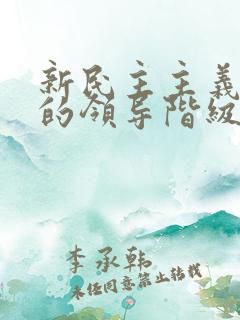 新民主主義
的領导階級
李承韩
未经同意禁止转载